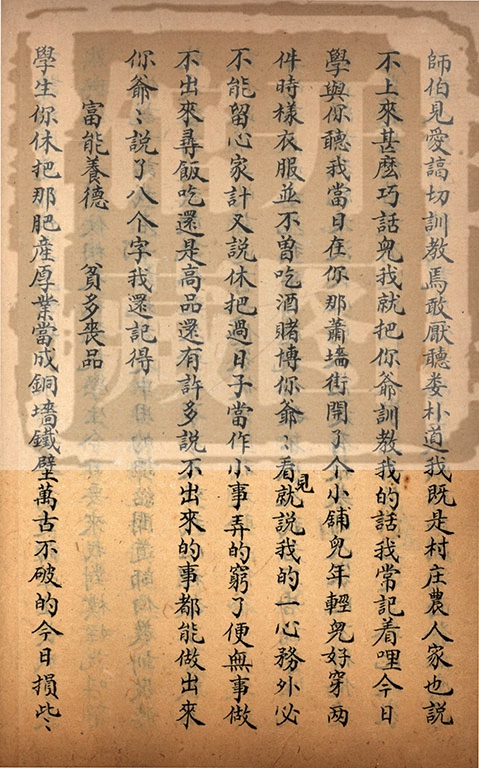 師伯見愛諄切訓教焉敢厭聽娄朴道我既是村庄農人家也説
不上來甚麽巧話皃我就把你爺訓教我的話我常記着哩今日
學與你聽我當日在你那蕭墻街開了个小舖皃年輕皃好穿两
件時樣衣服並不曾吃酒賭博你爺〻看見就説我的一心務外必
不能留心家計又説休把過日子當作小事弄的窮了便無事做
不出來尋飯吃還是高品還有許多説不出來的事都能做出來
你爺〻説了八个字我還記得
富能養德　貧多喪品
學生你休把那肥產厚業當成銅墻鐵壁萬古不破的今日損些〻